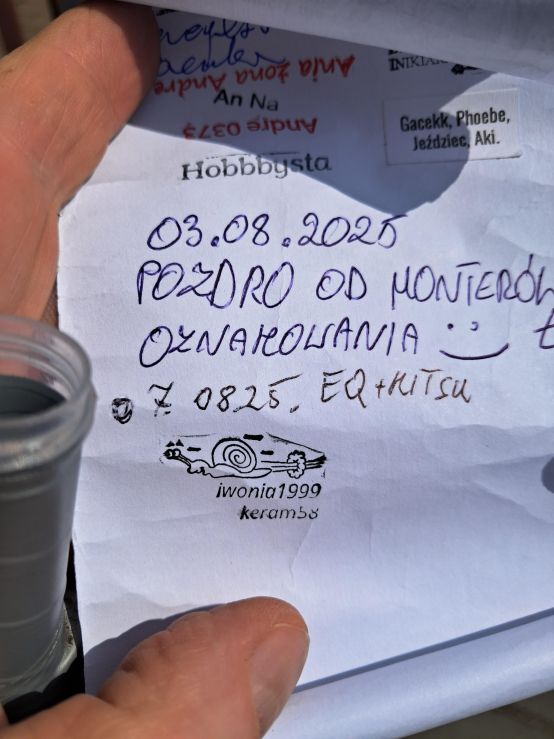 Ania żona Andre
INIKIA
An Na
Andre 0373
Gacekk, Phoebe,
Jeździec, Aki.
Hobbbysta
03.08.2025
POZDRO OD MONTERÓW
OZNAKOWANIA :)
7.0825. EQ+KITSU
iwonia1999
keram58